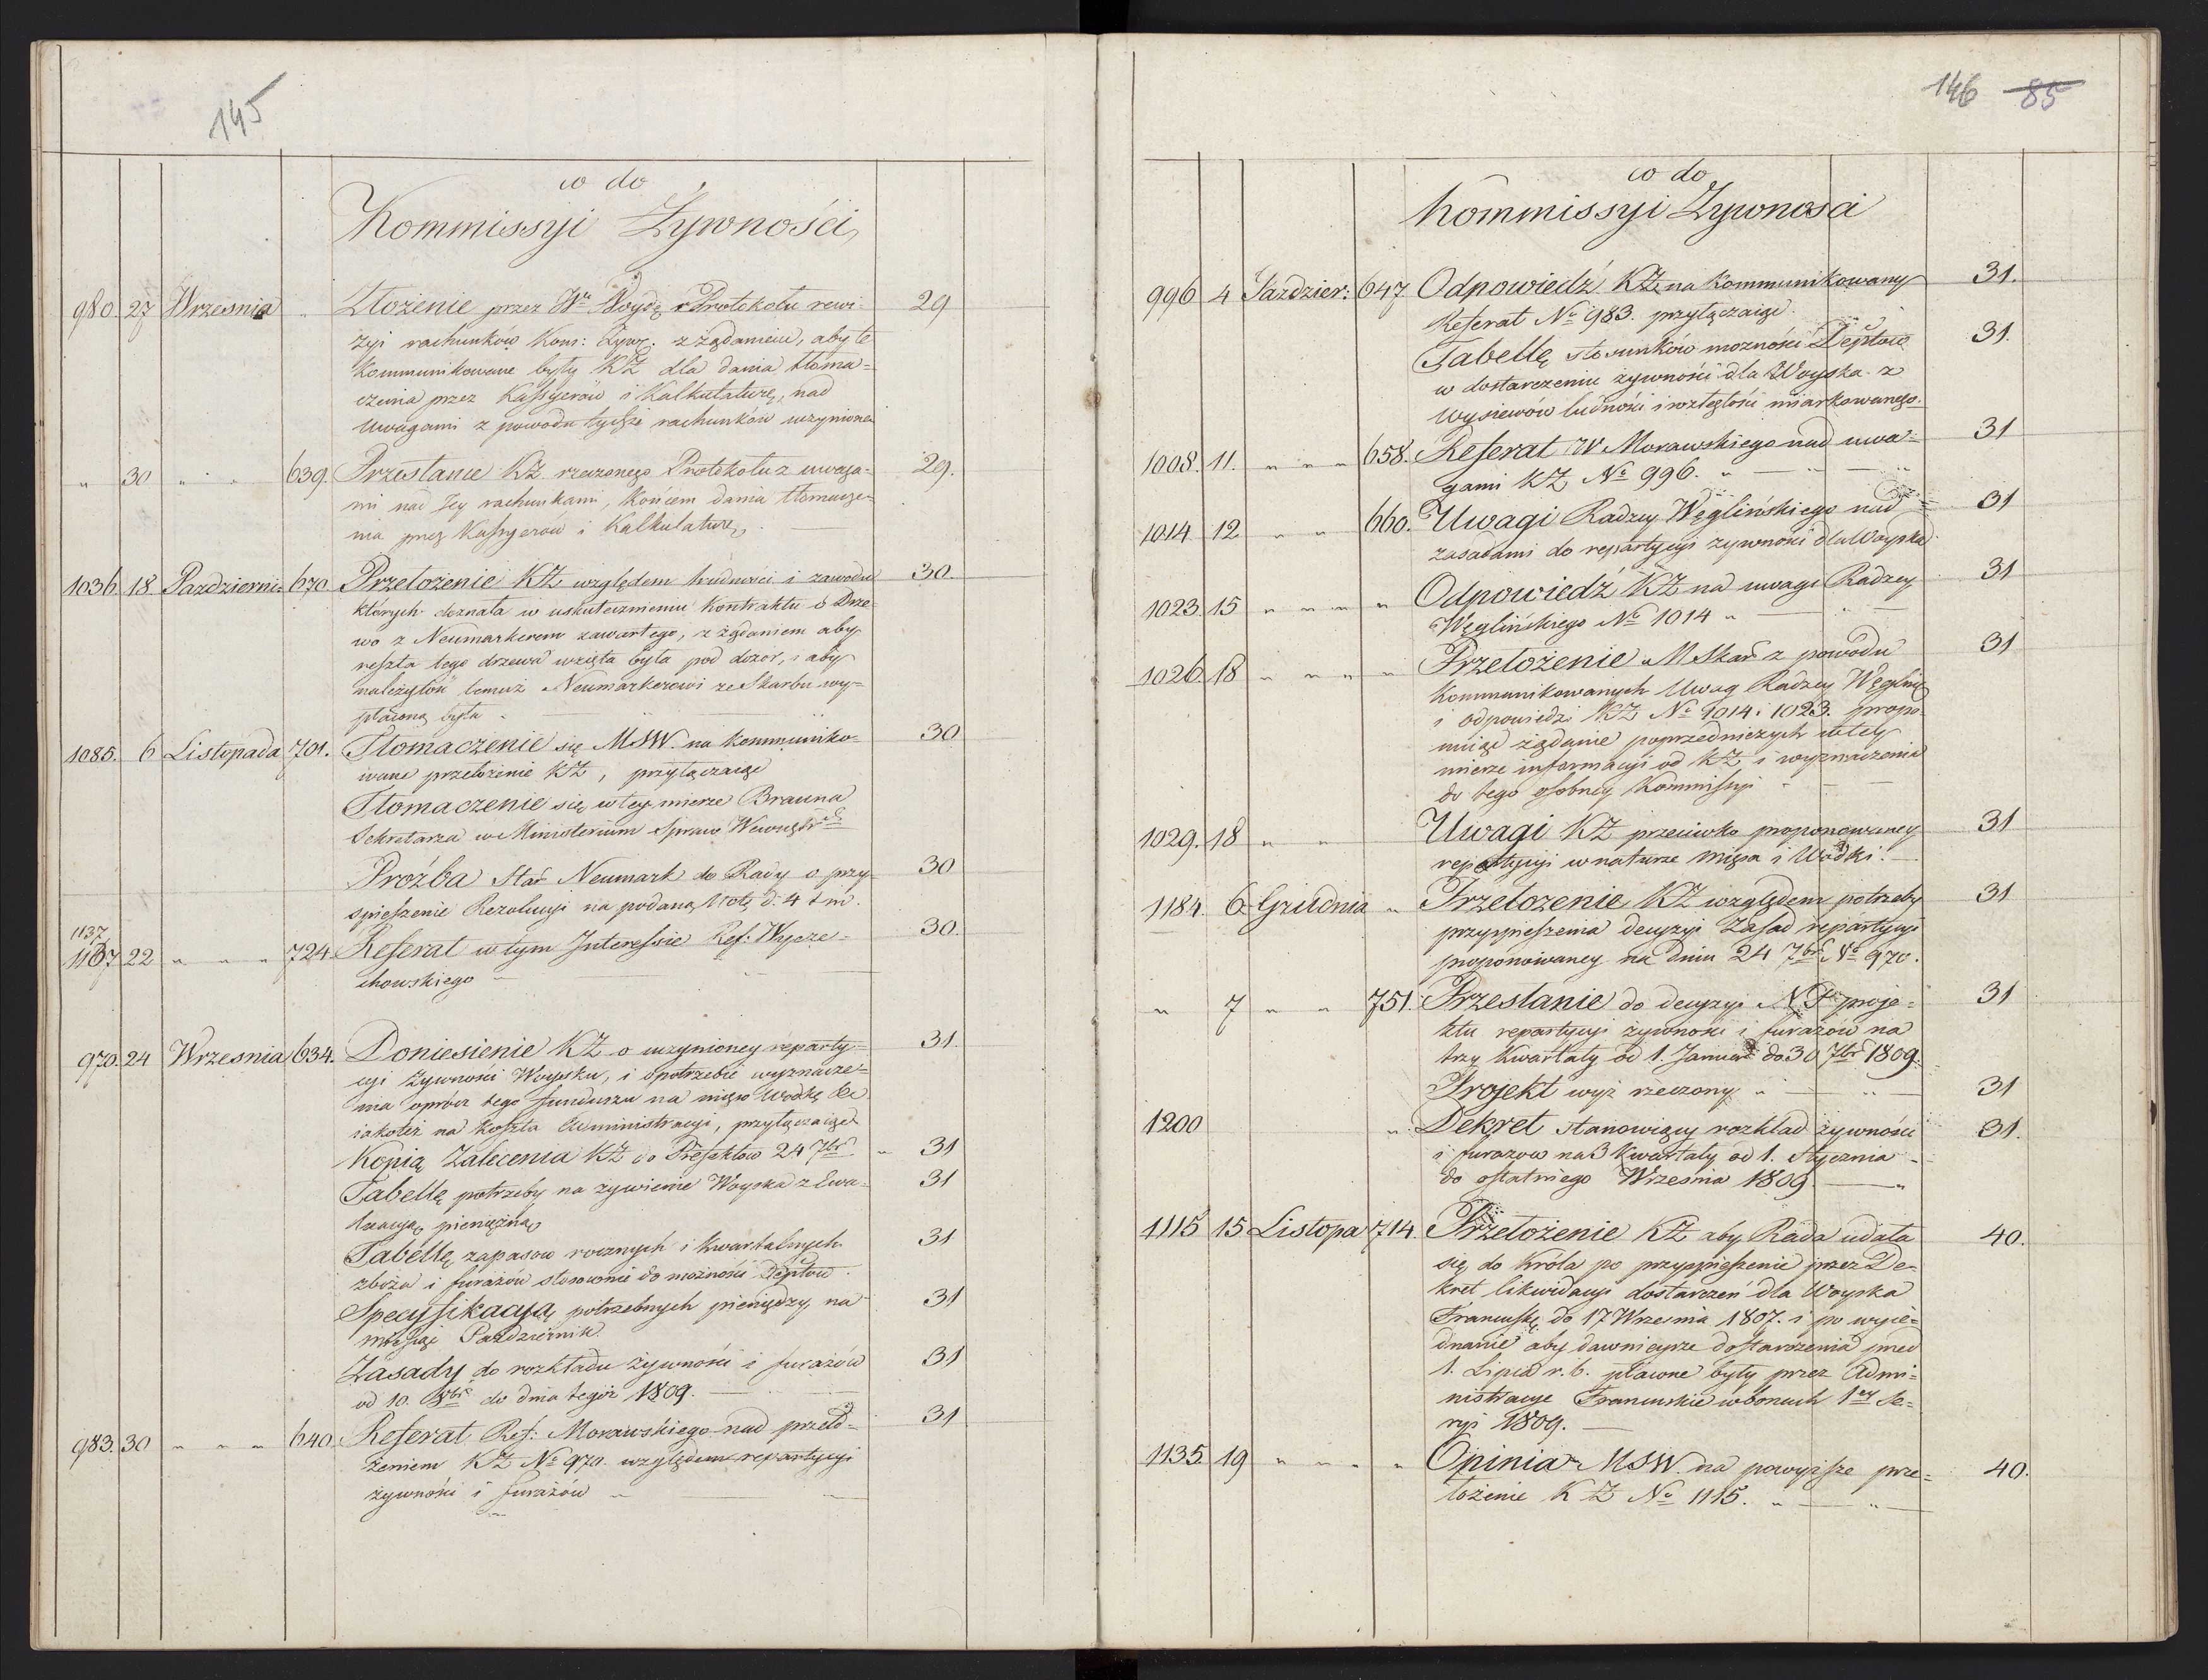 145
co do
Kommissyi Żywności
980. 27 Wrzesnia " Złożenie przez Wo Woydę Protokołu rewi- 29
zyi rachunków Kom: Żywn: z żądaniem, aby te
kommunikowane były KŻ dla dania tłoma-
czenia przez Kassyerów i Kalkulaturę, nad
Uwagami z powodu tychże rachunków uczynione
" 30 " " 639. Przesłanie KŻ rzeczonego Protokołu z uwaga- 29.
mi nad Jey rachunkami, końcem dania tłomacze-
nia przez Kassyerow i Kalkulaturę
1036 18 Pazdzierni- 670 Przełożenie KŻ względem trudności i zawodu 30.
których doznała w uskutecznieniu Kontraktu o Drze-
wo z Neumarkerem zawartego, z żądaniem aby
reszta tego drzewa wzięta była pod dozor, i aby
należytość temuż Neumarkerowi ze Skarbu wy-
płaconą była
1085. 6 Listopada 701. Tłomaczenie się MSW. na kommuniko- 30
wane przełożenie KŻ, przyłączaiąc
Tłomaczenie się w tey mierze Brauna
Sekretarza w Ministerium Spraw Wewnętr
Prożba Star Neumark do Rady o przy- 30
spieszenie Rezolucyi na podaną Notę d. 4 t m.
1137
1167 22 " " " 724. Referat w tym Interessie Ref: Wycze- 30.
chowskiego
970. 24 Wrzesnia 634. Doniesienie KŻ o uczynioney reparty- 31.
cyi Żywności Woysku, i o potrzebie wyznacze-
nia oprócz tego funduszu na mięso wodkę &c
iakoteż na koszta Administracyi, przyłączaiąc
Kopią Zalecenia KŻ do Prefektow 24 7br " 31
Tabellę potrzeby na zywienie Woyska z Ewa- 31
luacyą pieniężną
Tabellę zapasow rocznych i kwartalnych 31
zboża i furażów stosownie do możności Deptow
Specyfikacyą potrzebnych pieniędzy na 31
miesiąc Pazdziernik.
Zasady do rozkładu żywności i furażów 31
od 10. 8br do dnia tegoż 1809.
983. 30 " " " 640 Referat Ref: Morawskiego nad przeło- 31
żeniem KŻ No 970. względem repartycyi
żywności i furażów "
146 85
co do
Kommissyi Żywnosci
996 4 Pazdzier: 647 Odpowiedź KŻ na kommunikowany 31.
Referat No 983. przyłączaiąc
Tabellę stosunków możności Deptow 31.
w dostarczeniu żywności dla Woyska z
Wysiewów ludności i rozległości miarkowanego.
1008. 11. " " " 658. Referat W Morawskiego nad uwa- 31
gami KŻ No 996. "
1014 12 " " 660. Uwagi Radzcy Węglińskiego nad 31
zasadami do repartycyi zywności dla Woyska
1023. 15 " " " " Odpowiedź KŻ na uwagi Radzcy 31
Węglińskiego No 1014 "
1026 18 " " " " Przełożenie M Skar z powodu 31
kommunikowanych Uwag Radzcy Węgliń
i odpowiedzi KŻ No 1014 i 1023. propo-
nuiąc żądanie poprzedniczych w tey
mierze informacyi od KŻ i wyznaczenia
do tego osobney Kommissyi
1029. 18 " " Uwagi KŻ przeciwko proponowaney 31
repartycyi w naturze mięsa i Wodki.
1184. 6 Grudnia " Przełozenie KŻ względem potrzeby 31
przyspieszenia decyzyi Zasad repartycyi
proponowaney na dniu 24 7br No 970.
" 7 " " 751. Przesłanie do decyzyi N P proje- 31
ktu repartycyi żywności i furażów na
trzy Kwartały od 1. Januar do 30 7br 1809.
Projekt wyż rzeczony " 31
1200 " Dekret stanowiący rozkład żywności 31.
i furazow na 3 Kwartały od 1. Stycznia
do ostatniego Września 1809.
1115 15 Listopa 714. Przełożenie KŻ aby Rada udała 40.
się do Króla po przyspieszenie przez De-
kret likwidacyi dostarczeń dla Woyska
Francuskie do 17 Wrzesnia 1807. i po wyie-
dnanie aby dawnieysze dostarczenia przed
1. Lipca r. b. płacone były przez Admi-
nistracye Francuskie w bonach 1ey Se-
ryi 1809.
1135. 19 " " " " Opinia MSW. na powyższe prze- 40.
łożenie KŻ No 1115. "